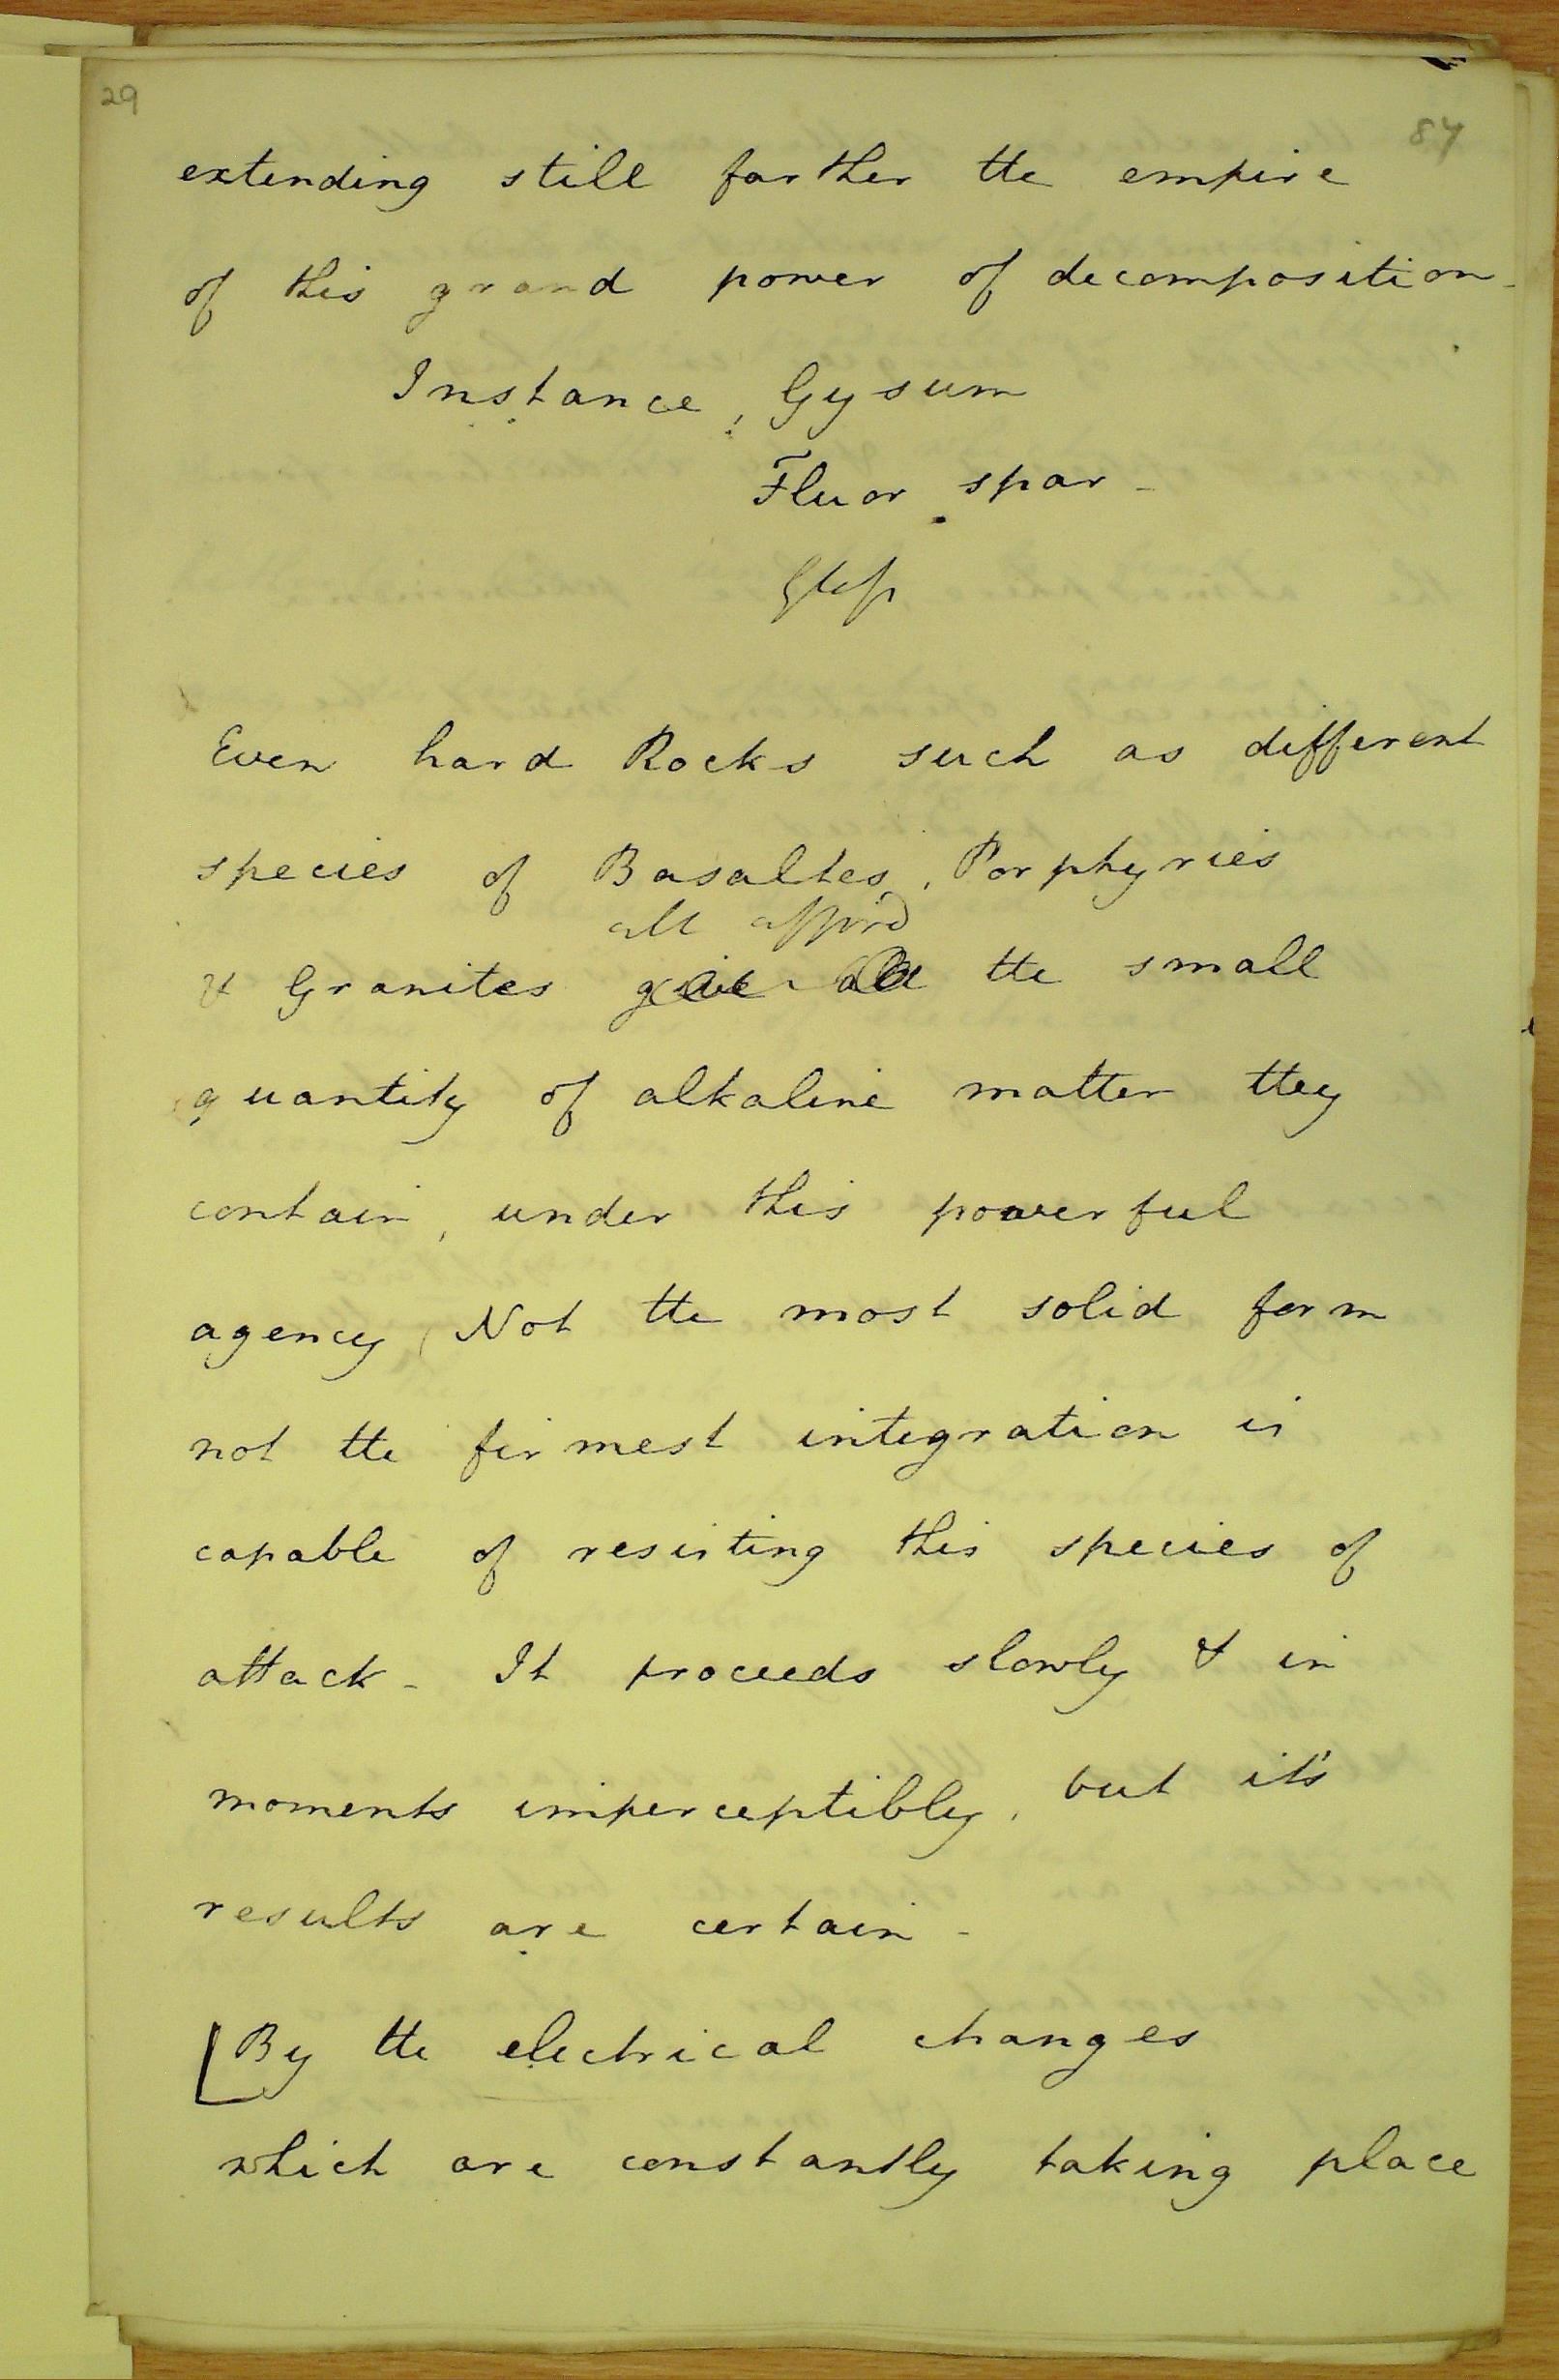 29
87
extending still farther the empire
of this grand power of decomposition -
Instance, Gysum
Fluor spar -
Glass
Even hard Rocks such as different
species of Basaltes, Porphyries
all afford
& Granites give all the small
quantity of alkaline matter they
contain, under this powerful
agency, Not the most solid form
not the firmest integration is
capable of resisting this species of
attack - It proceeds slowly & in
moments imperceptibly, but it's
results are certain -
[By the electrical changes
which are constantly taking place